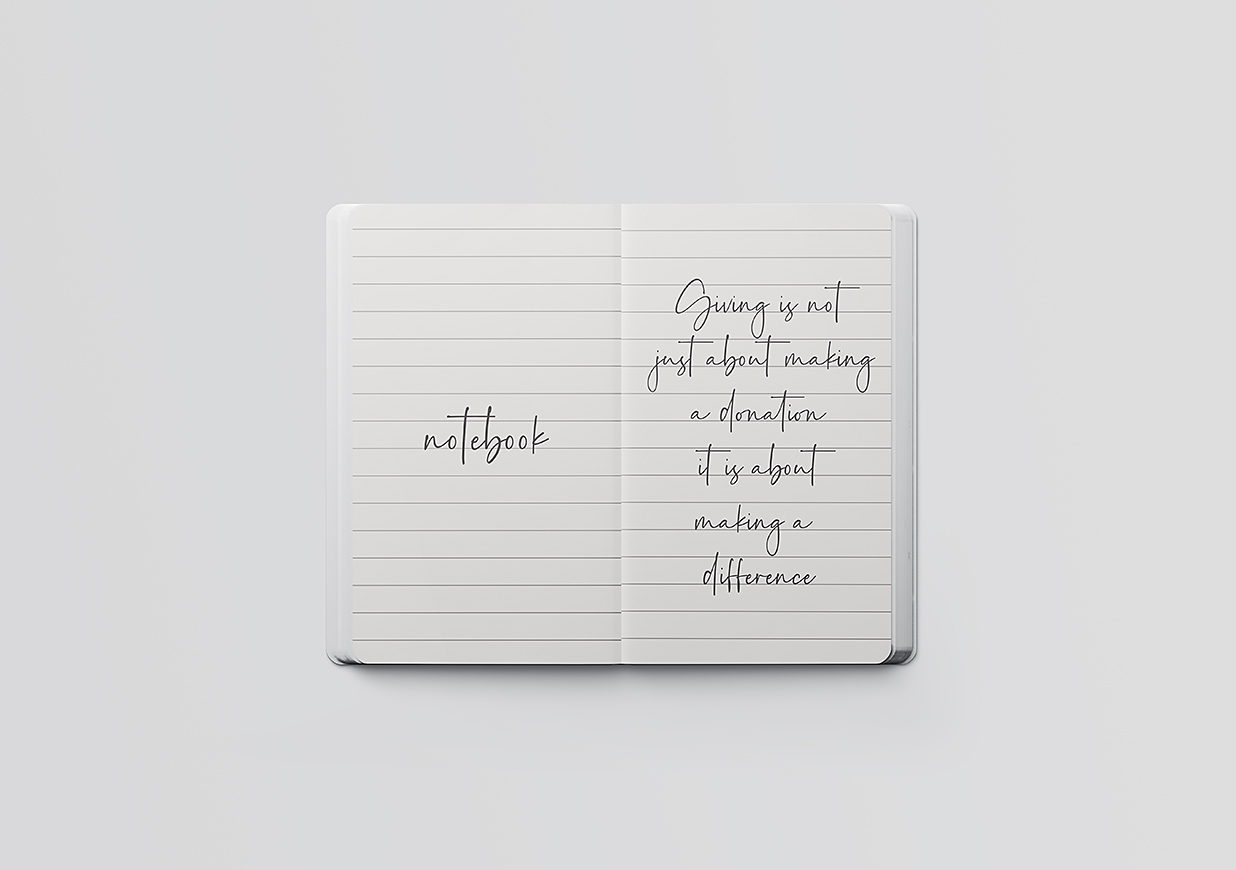 notebook
Giving is not
just about making
a donation
it is about
making a
difference